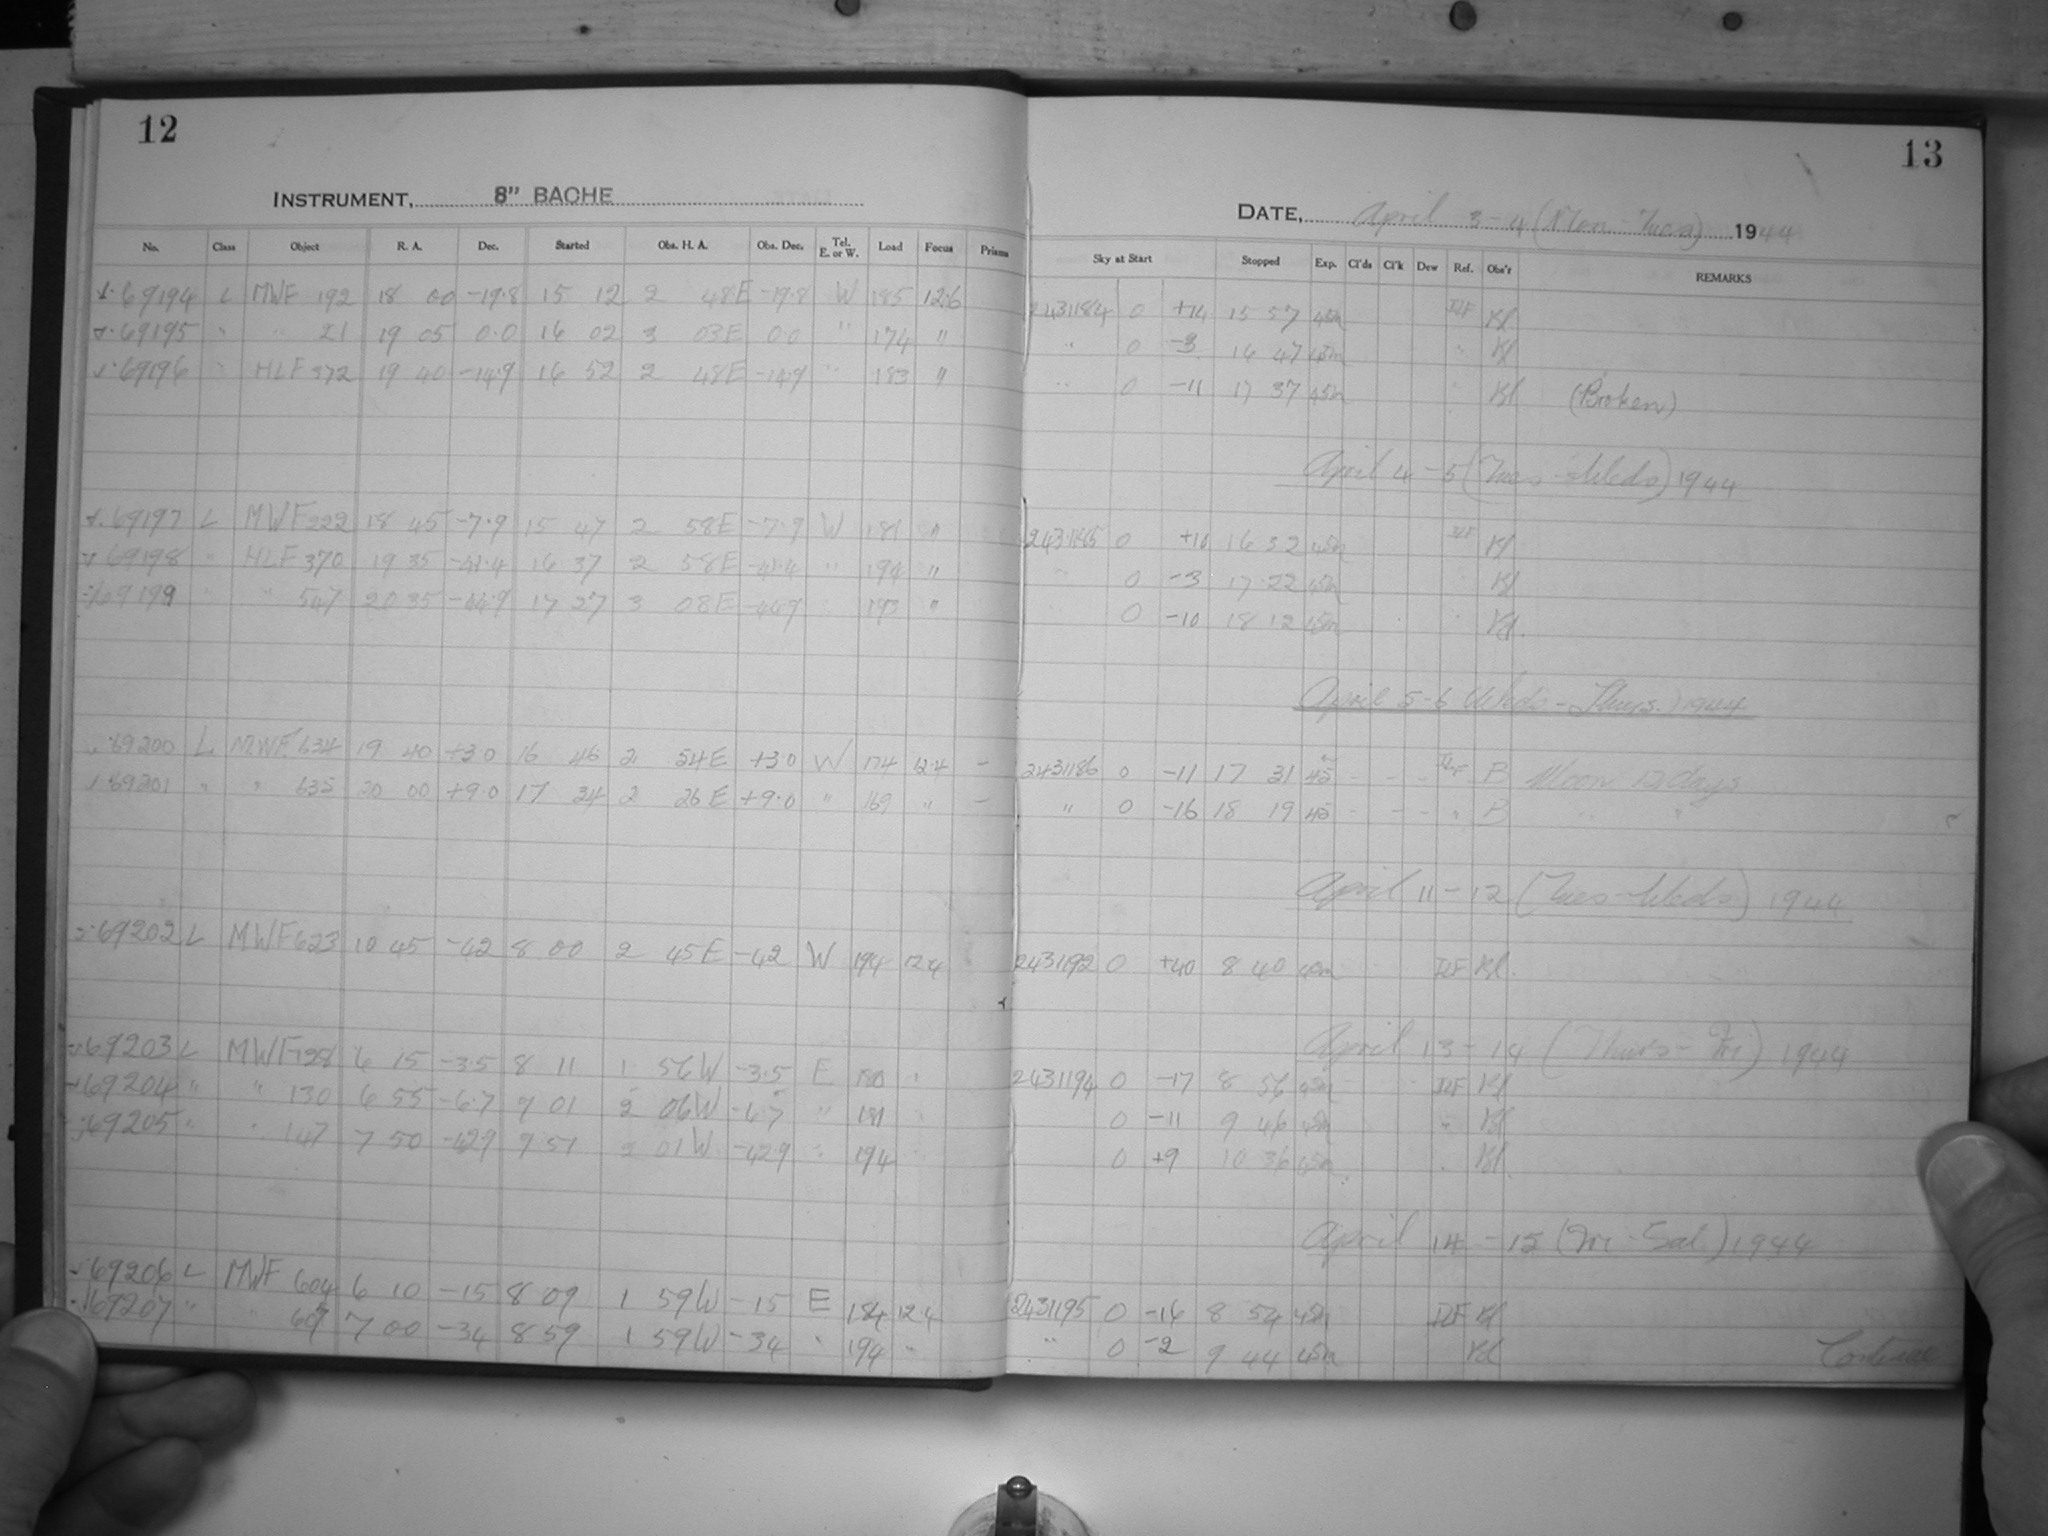 12
INSTRUMENT, 8" BACHE
No. Class Object R. A. Dec. Started Obs. H. A. Obs. Dec. Tel. E. or W. Load Focus Prisms
69194 L MWF 192 18 00 -19.8 15 12 2 48E -19.8 W 185 12.6
69195 " " 21 19 05 0.0 16 02 3 03E 0.0 " 174 "
69196 " HLF 372 19 40 -14.9 16 52 2 48E -14.9 " 183 "
69197 L MWF 222 18 45 -7.9 15 47 2 58E -7.9 W 181 "
69198 " HLF 370 19 35 -41.4 16 37 2 58E -41.4 " 194 "
69199 " " 547 20 35 -44.9 17 27 3 08E -44.9 193 "
69200 L MWF 634 19 40 +3.0 16 46 2 54E +3.0 W 174 12.4 -
69201 " " 635 20 00 +9.0 17 34 2 26E +9.0 " 169 " -
69202 L MWF 623 10 45 -42 8 00 2 45E -42 W 194 12.4
69203 L MWF 128 6 15 -3.5 8 11 1 56W -3.5 E 180 "
69204 " " 130 6 55 -6.7 9 01 2 06W -6.7 " 181
69205 " " 147 7 50 -42.9 9 51 2 01W -42.9 " 194
69206 L MWF 604 6 10 -15 8 09 1 59W -15 E 184 12.4
69207 " " 7 00 -34 8 59 1 59W -34 " 194 "
13
DATE, April 3-4 (Mon-Tues) 1944
Sky at Start Stopped Exp. Cl'ds Cl'k Dew Ref. Obs'r REMARKS
2431184 0 +14 15 57 45m Kl
" 0 -3 16 47 45m " Kl
" 0 -11 17 37 45m " Kl (Broken)
April 4-5 (Tues-Weds) 1944
2431185 0 +10 16 32 45m Kl
" 0 -3 17 22 45m " Kl
0 -10 18 12 45m " Kl.
April 5-6 Weds-Thurs.) 1944
2431186 0 -11 17 31 45 - - - B Moon 12 days
" 0 -16 18 19 45 - - - " B " "
April 11-12 (Tues-Weds) 1944
2431192 0 +40 8 40 40m Kl.
April 13-14 (Thurs-Fri) 1944
2431194 0 -17 8 56 45m Kl
0 -11 9 46 45m " Kl
0 +9 10 36 45m " Kl.
April 14-15 (Fri-Sat.) 1944
2431195 0 -16 8 54 45m Kl
" 0 -2 9 44 45m Kl
Continue